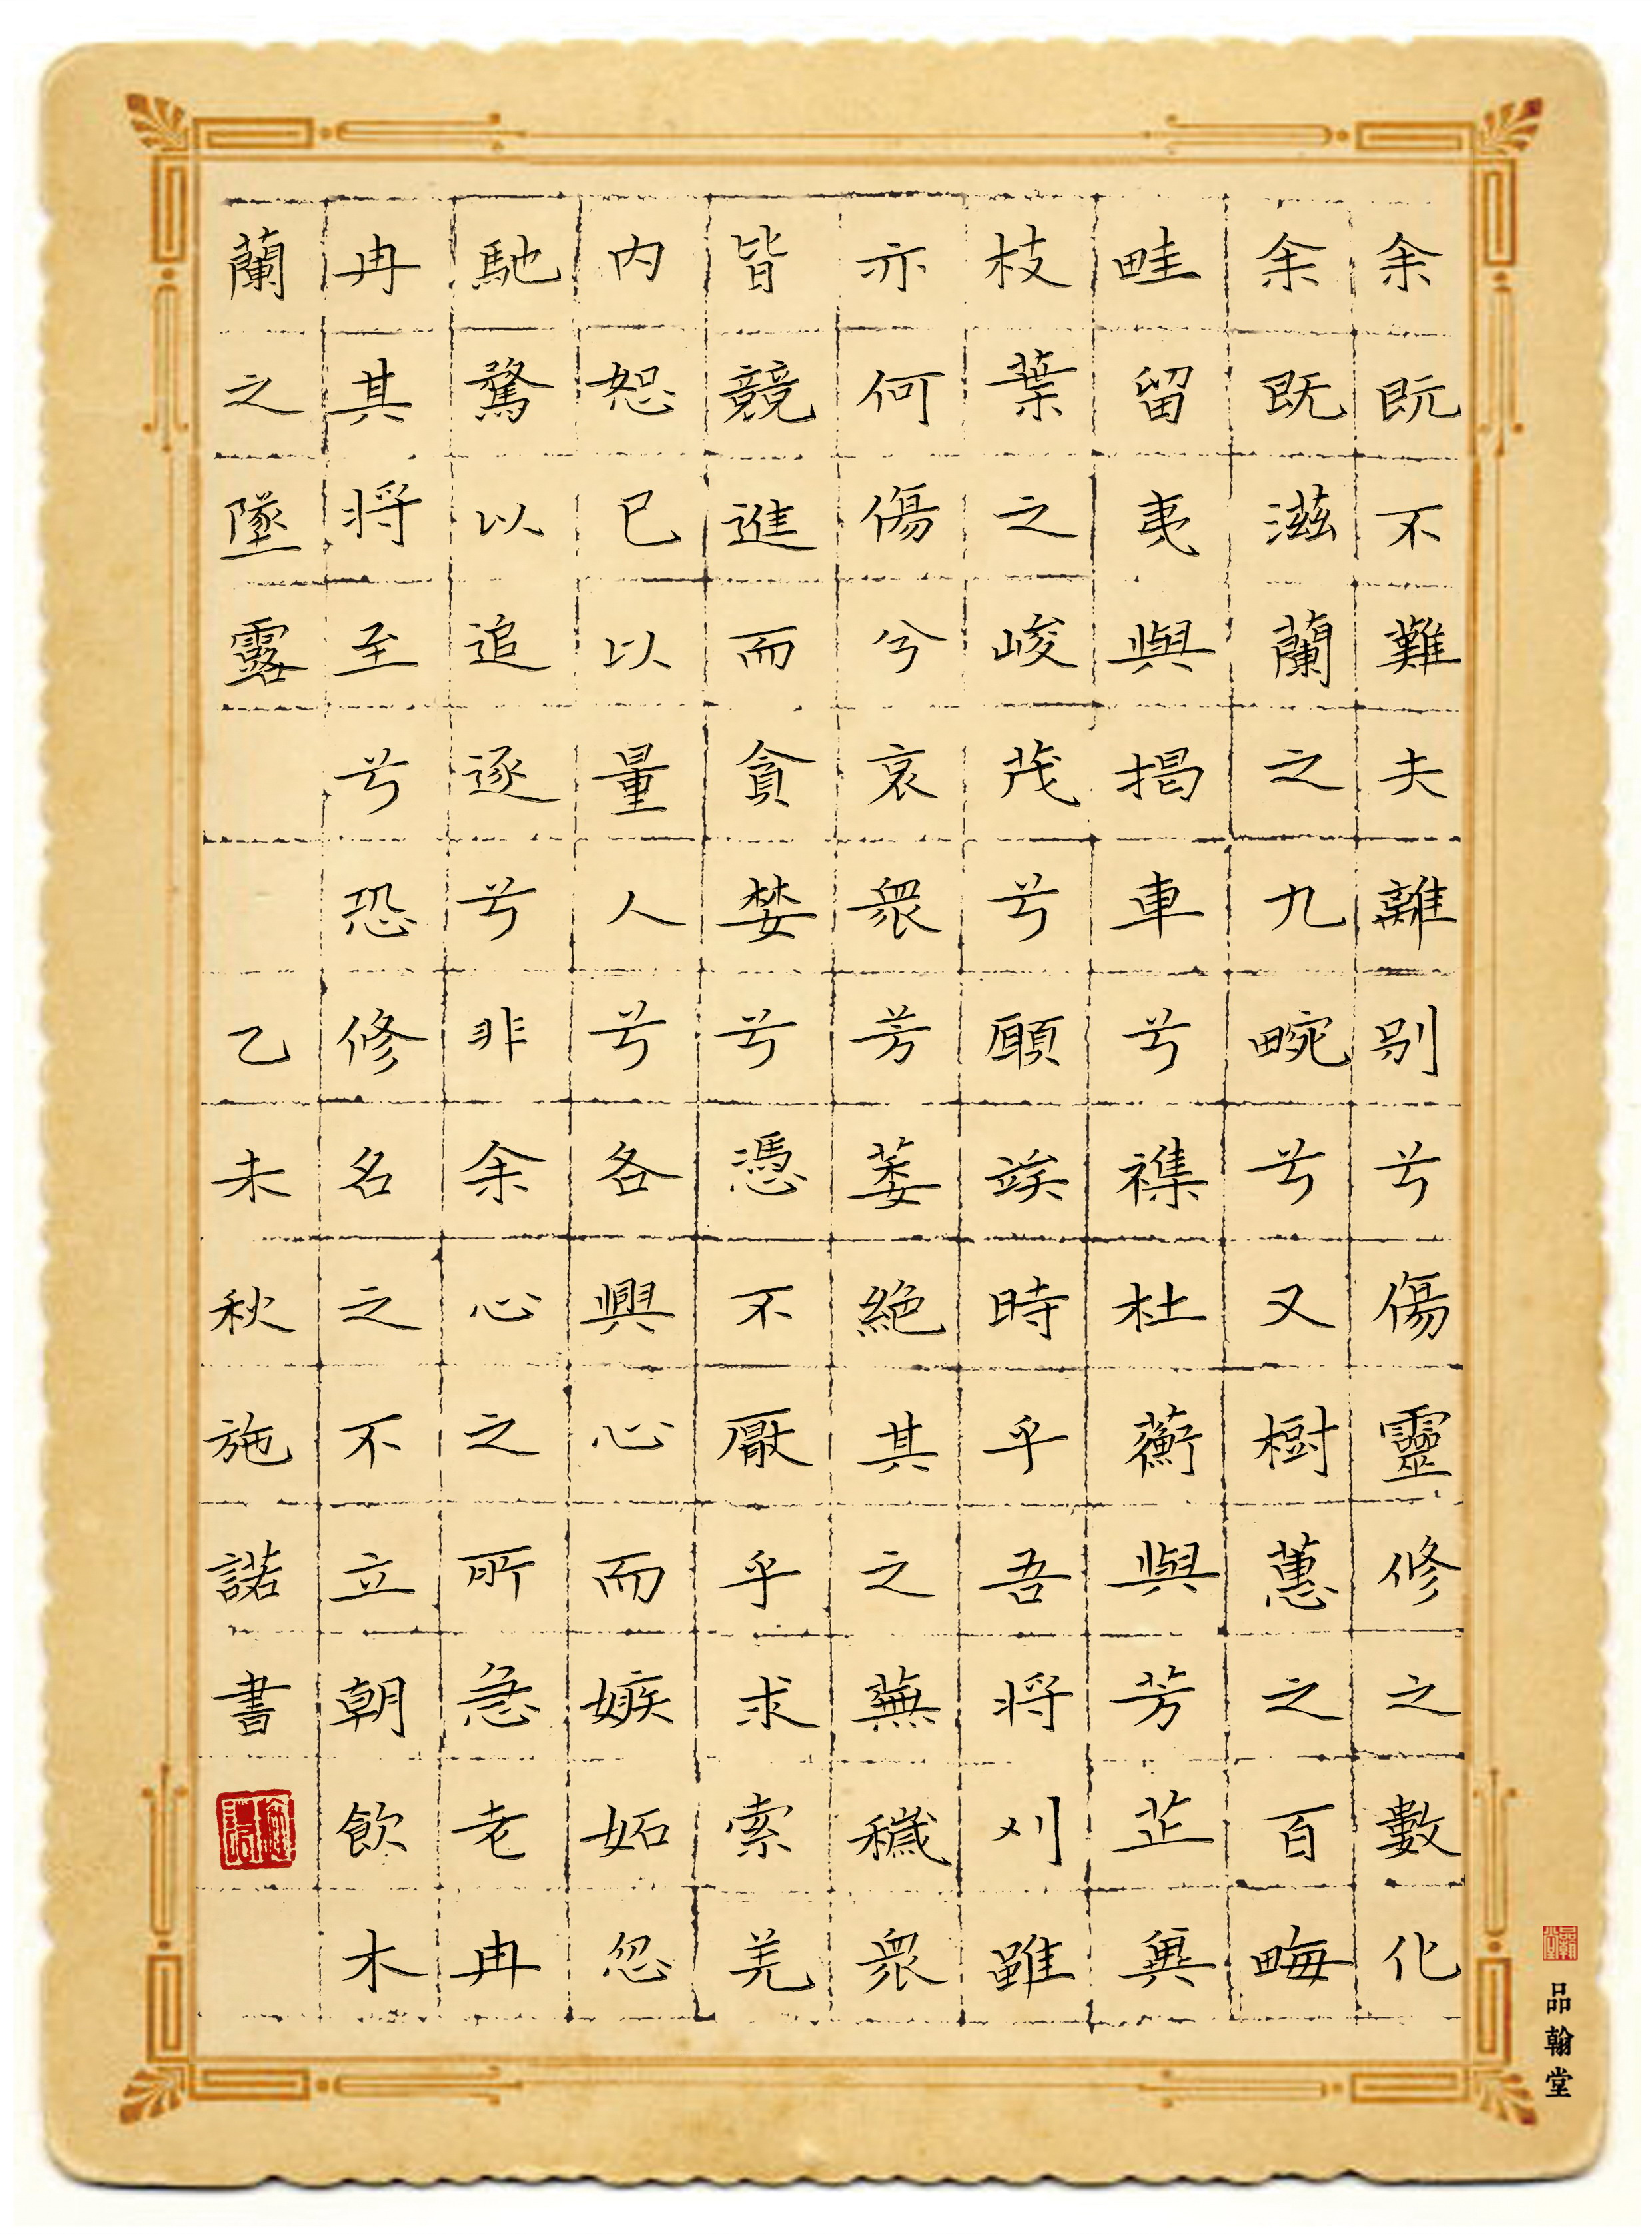 余既不難夫離別兮傷靈修之數化
余既滋蘭之九畹兮又樹蕙之百畮
畦留夷與揭車兮襍杜蘅與芳芷冀
枝葉之峻茂兮願竢時乎吾將刈雖
亦何傷兮哀衆芳萎絕其之蕪穢衆
皆競進而貪婪兮憑不厭乎求索羌
內恕已以量人兮各興心而嫉妬忽
馳騖以追逐兮非余心之所急老冉
冉其將至兮恐修名之不立朝飲木
蘭之墜露
乙未秋施諾書
品翰堂